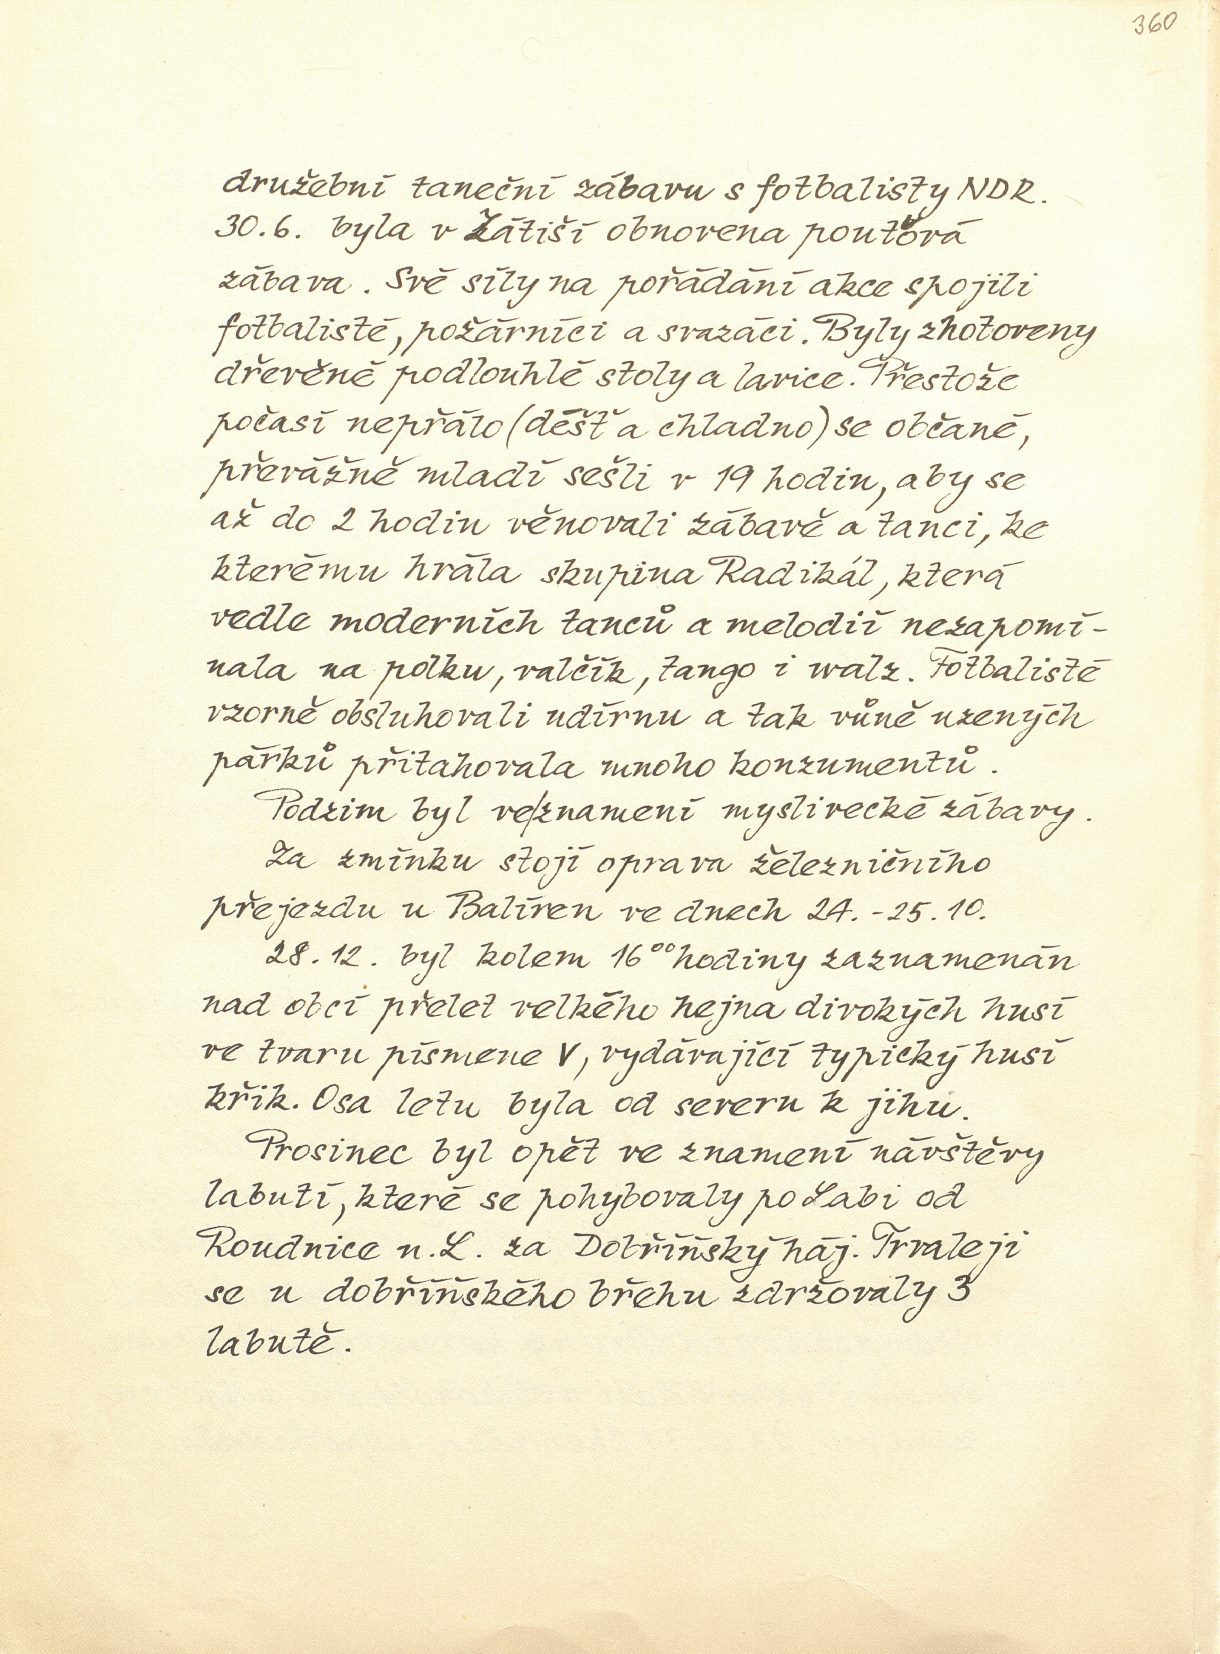 360
družební taneční zábavu s fotbalisty NDR.
30.6. byla v Zátiší obnovena pouťová
zábava. Své síly na pořádání akce spojili
fotbalisté, požárníci a svazáci. Byly zhotoveny
dřevěné podlouhlé stoly a lavice. Přestože
počasí nepřálo (déšť a chladno) se občané,
převážně mladí sešli v 19 hodin, aby se
až do 2 hodin věnovali zábavě a tanci, ke
kterému hrála skupina Radikál, která
vedle moderních tanců a melodií nezapomí-
nala na polku, valčík, tango i walz. Fotbalisté
vzorně obsluhovali udírnu a tak vůně uzených
párků přitahovala mnoho konzumentů.
Podzim byl ve/znamení myslivecké zábavy.
Za zmínku stojí oprava železničního
přejezdu u Balíren ve dnech 24.-25.10.
28.12. byl kolem 16⁰⁰ hodiny zaznamenán
nad obcí přelet velkého hejna divokých husí
ve tvaru písmene V, vydávající typický husí
křik. Osa letu byla od severu k jihu.
Prosinec byl opět ve znamení návštěvy
labutí, které se pohybovaly po Labi od
Roudnice n.L. za Dobříňský háj. Trvaleji
se u dobříňského břehu zdržovaly 3
labutě.